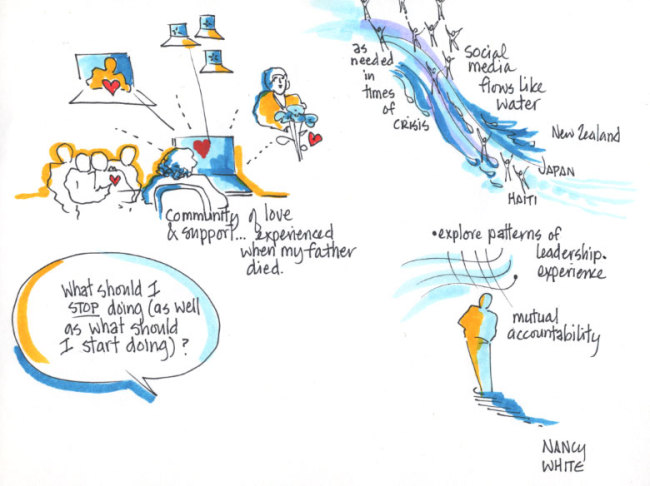 community of love
& support... experienced
when my father
died.
as
needed
in
times
of
CRISIS
social
media
flows like
water
New Zealand
JAPAN
HAITI
What should I
STOP doing (as well
as what should
I start doing)?
• explore patterns of
leadership.
experience
mutual
accountability
NANCY
WHITE